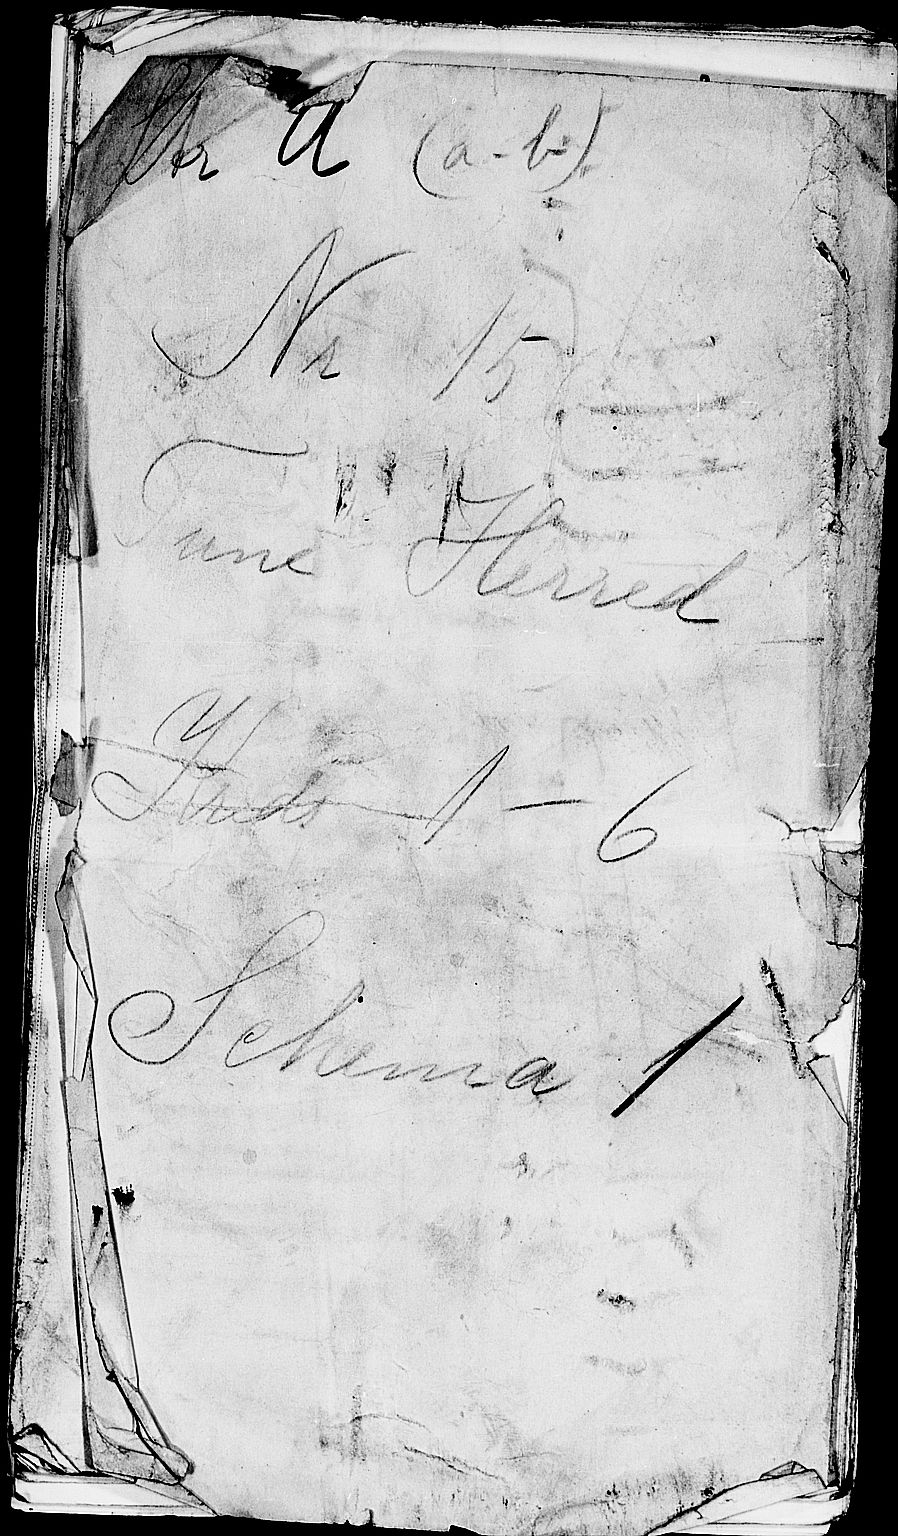 Str A (a-b)
Nr 15
Tune Herred
Kreds 1 - 6
Schema 1